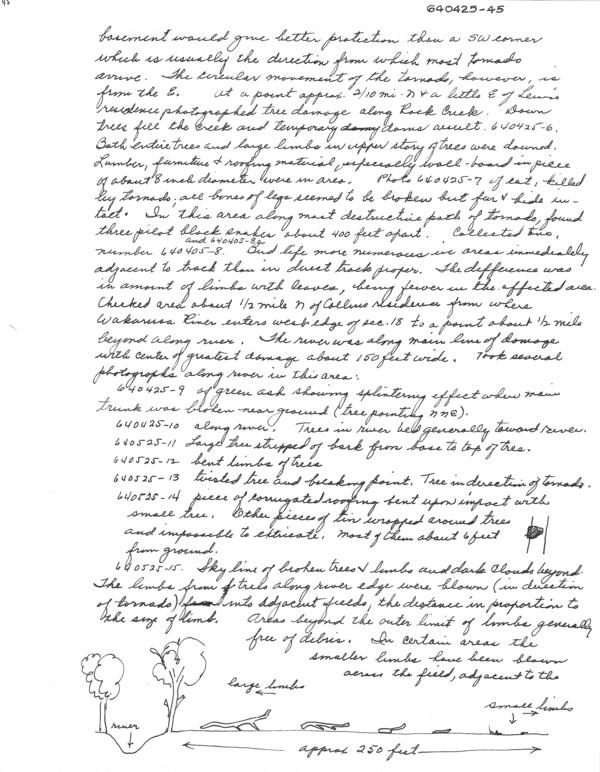 640425-45
basement would give better protection than a SW corner
which is usually the direction from which most tornado
arrive. The circular movement of the tornado, however, is
from the E. At a point approx. 2/10 mi. N & a little E of Lewis
residence photographed tree damage along Rock Creek. Down
trees fill the creek and temporary dams result. 640425-6.
Both entire trees and large limbs in upper story of trees were downed.
Lumber, furniture & roofing material, especially wall-board in piece
of about 8 inch diameter were in area. Photo 640425-7 of cat, killed
by tornado; all bones of legs seemed to be broken but fur & hide in-
tact. In this area along most destructive path of tornado, found
three pilot black snakes about 400 feet apart. Collected two,
and 640405-8a
number 640405-8. Bird life more numerous in areas immediately
adjacent to track than in direct track proper. The difference was
in amount of limbs with leaves, being fewer in the affected area.
Checked area about 1/2 mile N of Collins residence from where
Wakarusa River enters west edge of sec. 18 to a point about 1/2 mile
beyond along river. The river was along main line of damage
with center of greatest damage about 150 feet wide. Took several
photographs along river in this area:
640425-9 of green ash showing splintering effect when main
trunk was broken near ground (tree pointing NNE).
640425-10 along river. Trees in river generally toward river.
640525-11 Large tree stripped of bark from base to top of tree.
640525-12 bent limbs of trees
640525-13 twisted tree and breaking point. Tree in direction of tornado.
640525-14 piece of corrugated roofing bent upon impact with
small tree. Other pieces of tin wrapped around trees
and impossible to extricate. Most of them about 6 feet
from ground.
640525-15. Sky line of broken trees & limbs and dark clouds beyond.
The limbs from trees along river edge were blown (in direction
of tornado) into adjacent fields, the distance in proportion to
the size of limb. Areas beyond the outer limit of limbs generally
free of debris. In certain areas the
smaller limbs have been blown
across the field, adjacent to the
large limbs
small limbs
river
approx 250 feet